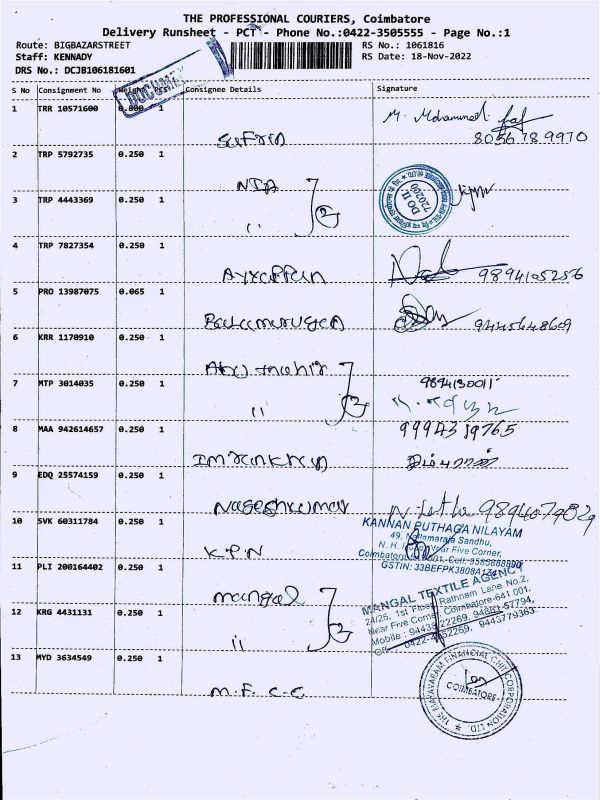 THE PROFESSIONAL COURIERS, Coimbatore
Delivery Runsheet - PCT - Phone No.:0422-3505555 - Page No.:1
Route: BIGBAZARSTREET
RS No.: 1061816
Staff: KENNADY
RS Date: 18-Nov-2022
DRS No.: DCJB106181601
S No Consignment No Weight Pcs Consignee Details Signature
DOCUM
1 TRR 10571600 0.800 1
M. Mohammed
Safrin 8056789970
2 TRP 5792735 0.250 1
NIA
3 TRP 4443369 0.250 1
DO II
720200
" 2
4 TRP 7827354 0.250 1
Ayyappan 9894105286
5 PRO 13987075 0.065 1
Balamurugan 9445648609
6 KRR 1170910 0.250 1
Abu
7 MTP 3014035 0.250 1
9894130011
" 2
8 MAA 942614657 0.250 1
9994319765
Imrankhan இம்ரான்
9 EDQ 25574159 0.250 1
Nageshkumar 9894079029
10 SVK 60311784 0.250 1
KANNAN PUTHAGA NILAYAM
49, Nallamaraja Sandhu,
N. H. Near Five Corner,
K.P.N
Coimbatore
GSTIN: 33BEFPK3808A1Z
11 PLI 200164402 0.250 1
mangal
MANGAL TEXTILE AGENCY
24/25, 1st Floor, Rathnam Lane No.2,
Near Five Corner, Coimbatore-641 001.
12 KRG 4431131 0.250 1
Mobile : 94433 22269, 94881-57794,
Off. 0422-4952269, 9443779363
" 2
13 MYD 3634549 0.250 1
THE MAPAVARAM FINANCIAL CHIT CORPORATION LTD.
COIMBATORE
M.F.C.C